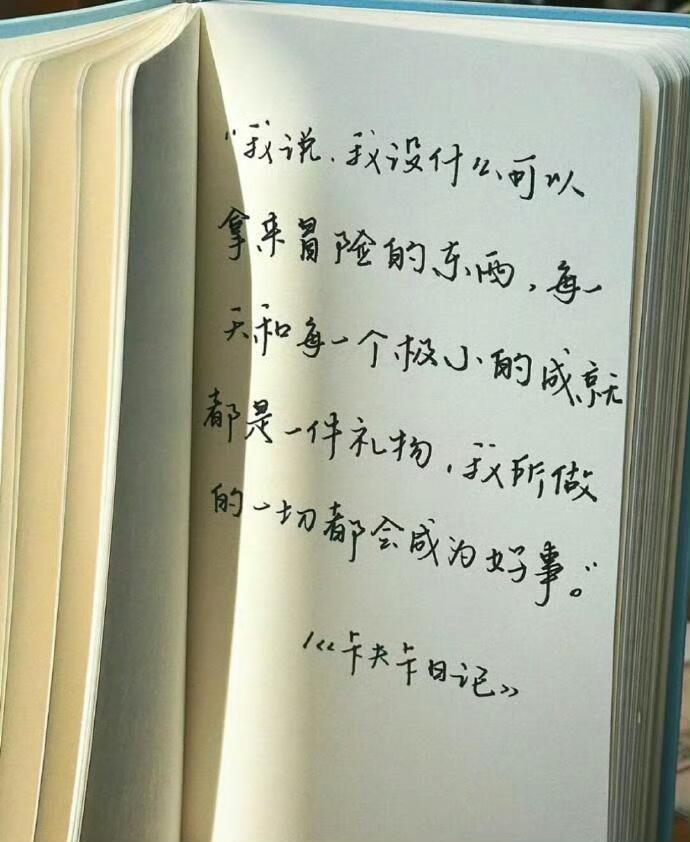 “我说，我没什么可以
拿来冒险的东西，每一
天和每一个极小的成就
都是一件礼物，我所做
的一切都会成为好事。”
/《卡夫卡日记》